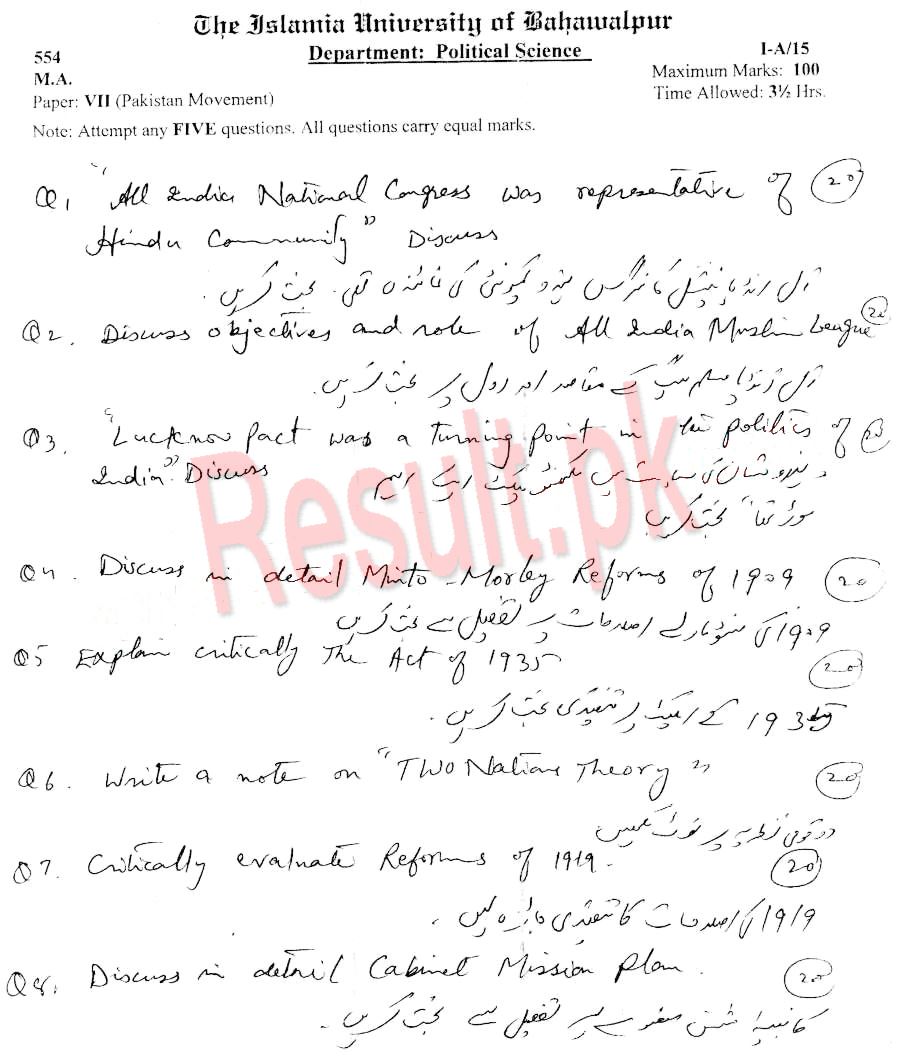 The Islamia University of Bahawalpur
Department: Political Science
554
I-A/15
M.A.
Maximum Marks: 100
Paper: VII (Pakistan Movement)
Time Allowed: 3½ Hrs.
Note: Attempt any FIVE questions. All questions carry equal marks.
Q1 "All India National Congress was representative of (20)
Hindu Community" Discuss
آل انڈیا نیشنل کانگرس ہندو کمیونٹی کی نمائندہ تھی۔ بحث کریں۔
Q2. Discuss objectives and role of All India Muslim League (20)
آل انڈیا مسلم لیگ کے مقاصد اور رول پر بحث کریں۔
Q3. "Lucknow Pact was a turning point in the politics of (20)
India" Discuss
ہندوستان کی سیاست میں لکھنؤ پیکٹ ایک اہم
موڑ تھا" بحث کریں
Result.pk
Q4. Discuss in detail Minto-Morley Reforms of 1909 (20)
1909 کی منٹو مارلے اصلاحات پر تفصیل سے بحث کریں
Q5 Explain critically The Act of 1935 (20)
1935 کے ایکٹ پر تنقیدی بحث کریں۔
Q6. Write a note on "TWO Nations Theory" (20)
دو قومی نظریہ پر نوٹ لکھیں
Q7. Critically evaluate Reforms of 1919. (20)
1919 کی اصلاحات کا تنقیدی جائزہ لیں۔
Q8. Discuss in detail Cabinet Mission Plan. (20)
کابینہ مشن منصوبے پر تفصیل سے بحث کریں۔